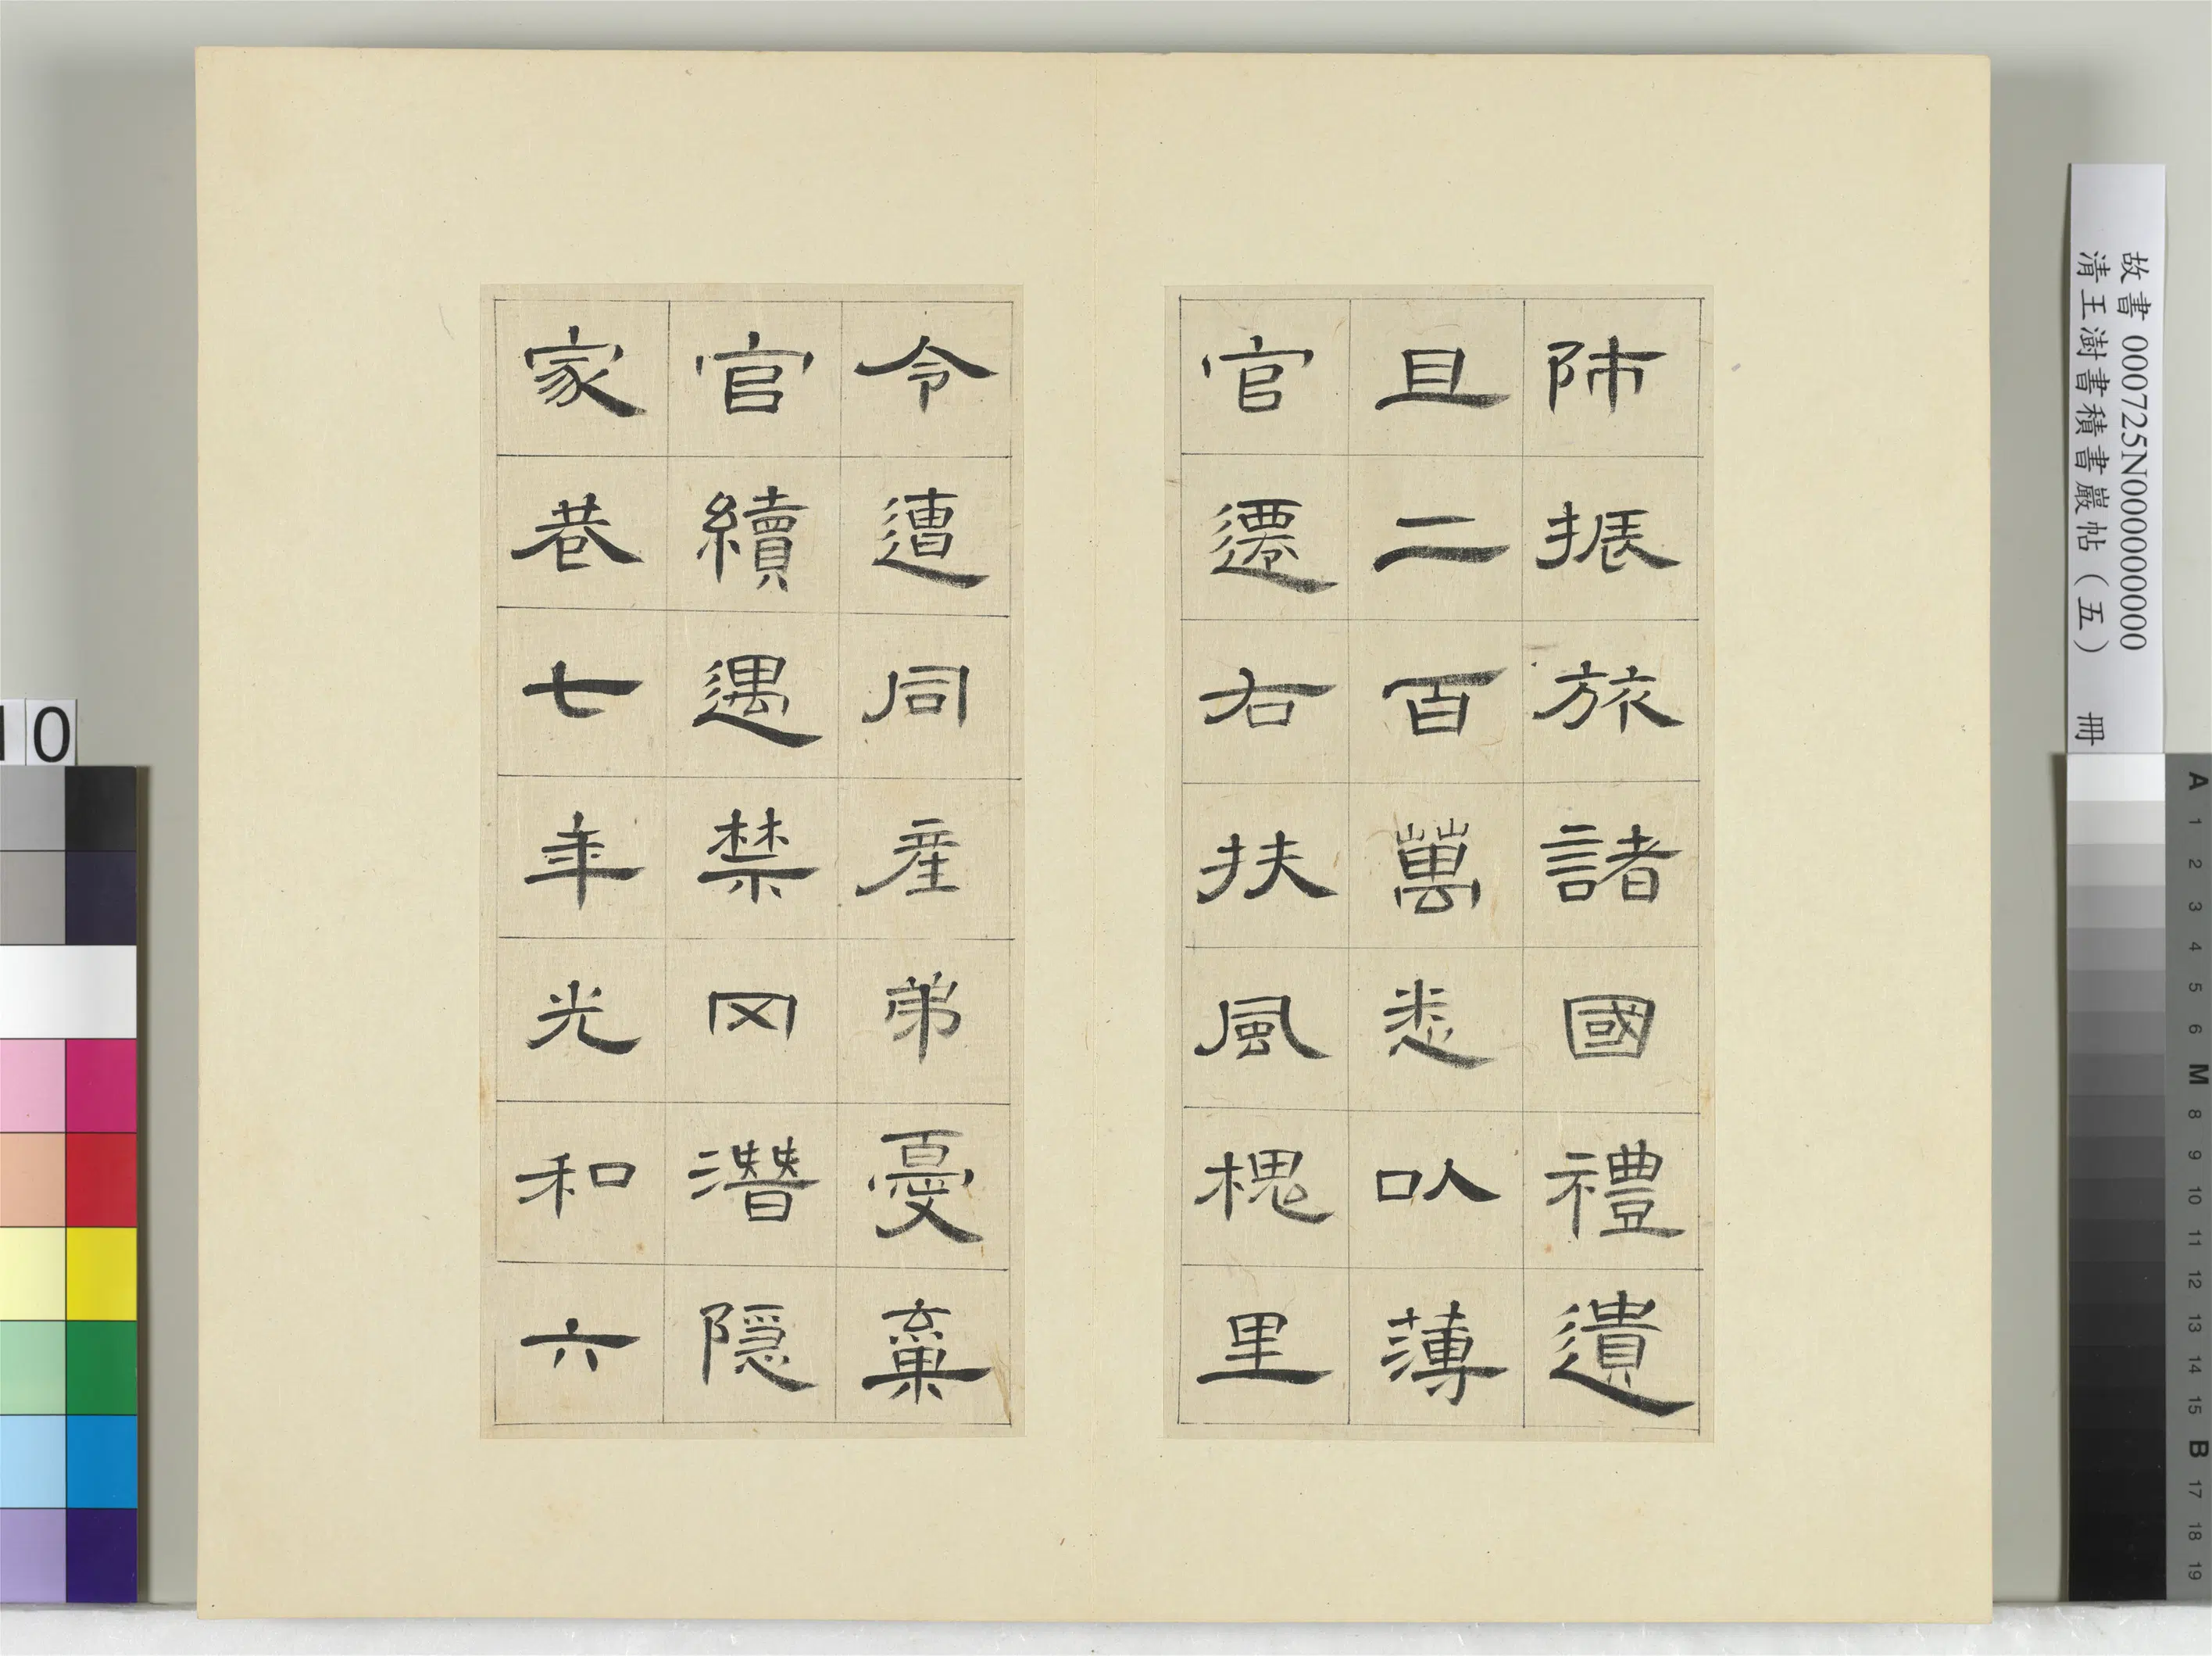 師振旅諸國禮遺
且二百萬悉以薄
官遷右扶風槐里
令遭同産弟憂棄
官續遇禁冈潛隱
家巷七年光和六
故書 000725N000000000
清王澍書積書巖帖（五） 冊
10
A 1 2 3 4 5 6 M 8 9 10 11 12 13 14 15 B 17 18 19